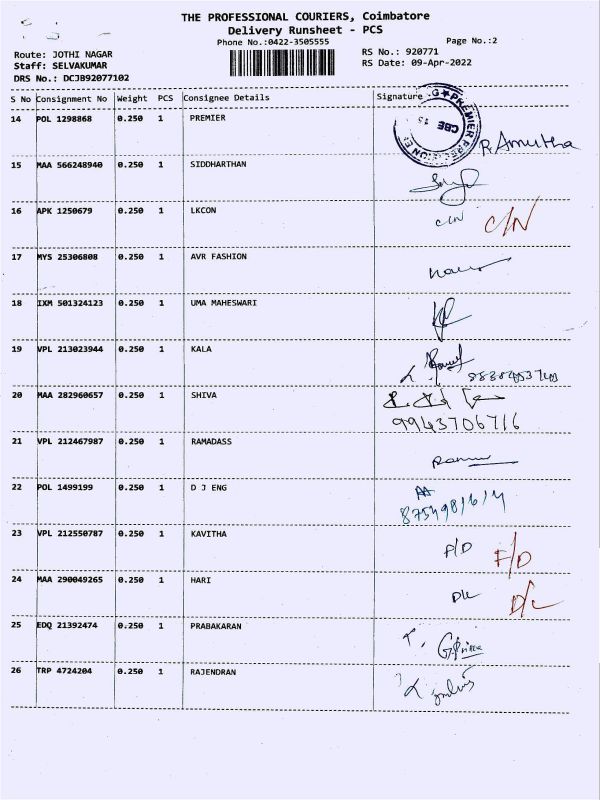 THE PROFESSIONAL COURIERS, Coimbatore
Delivery Runsheet - PCS
Phone No.:0422-3505555
Page No.:2
Route: JOTHI NAGAR
RS No.: 920771
Staff: SELVAKUMAR
RS Date: 09-Apr-2022
DRS No.: DCJB92077102
S No Consignment No Weight PCS Consignee Details Signature
14 POL 1298868 0.250 1 PREMIER
R. Amutha
15 MAA 566248940 0.250 1 SIDDHARTHAN
16 APK 1250679 0.250 1 LKCON C/N C/N
17 MYS 25306808 0.250 1 AVR FASHION
18 IXM 501324123 0.250 1 UMA MAHESWARI
19 VPL 213023944 0.250 1 KALA
20 MAA 282960657 0.250 1 SHIVA
9943706716
21 VPL 212467987 0.250 1 RAMADASS
22 POL 1499199 0.250 1 D J ENG
23 VPL 212550787 0.250 1 KAVITHA F/D F/D
24 MAA 290049265 0.250 1 HARI D/L D/L
25 EDQ 21392474 0.250 1 PRABAKARAN
26 TRP 4724204 0.250 1 RAJENDRAN